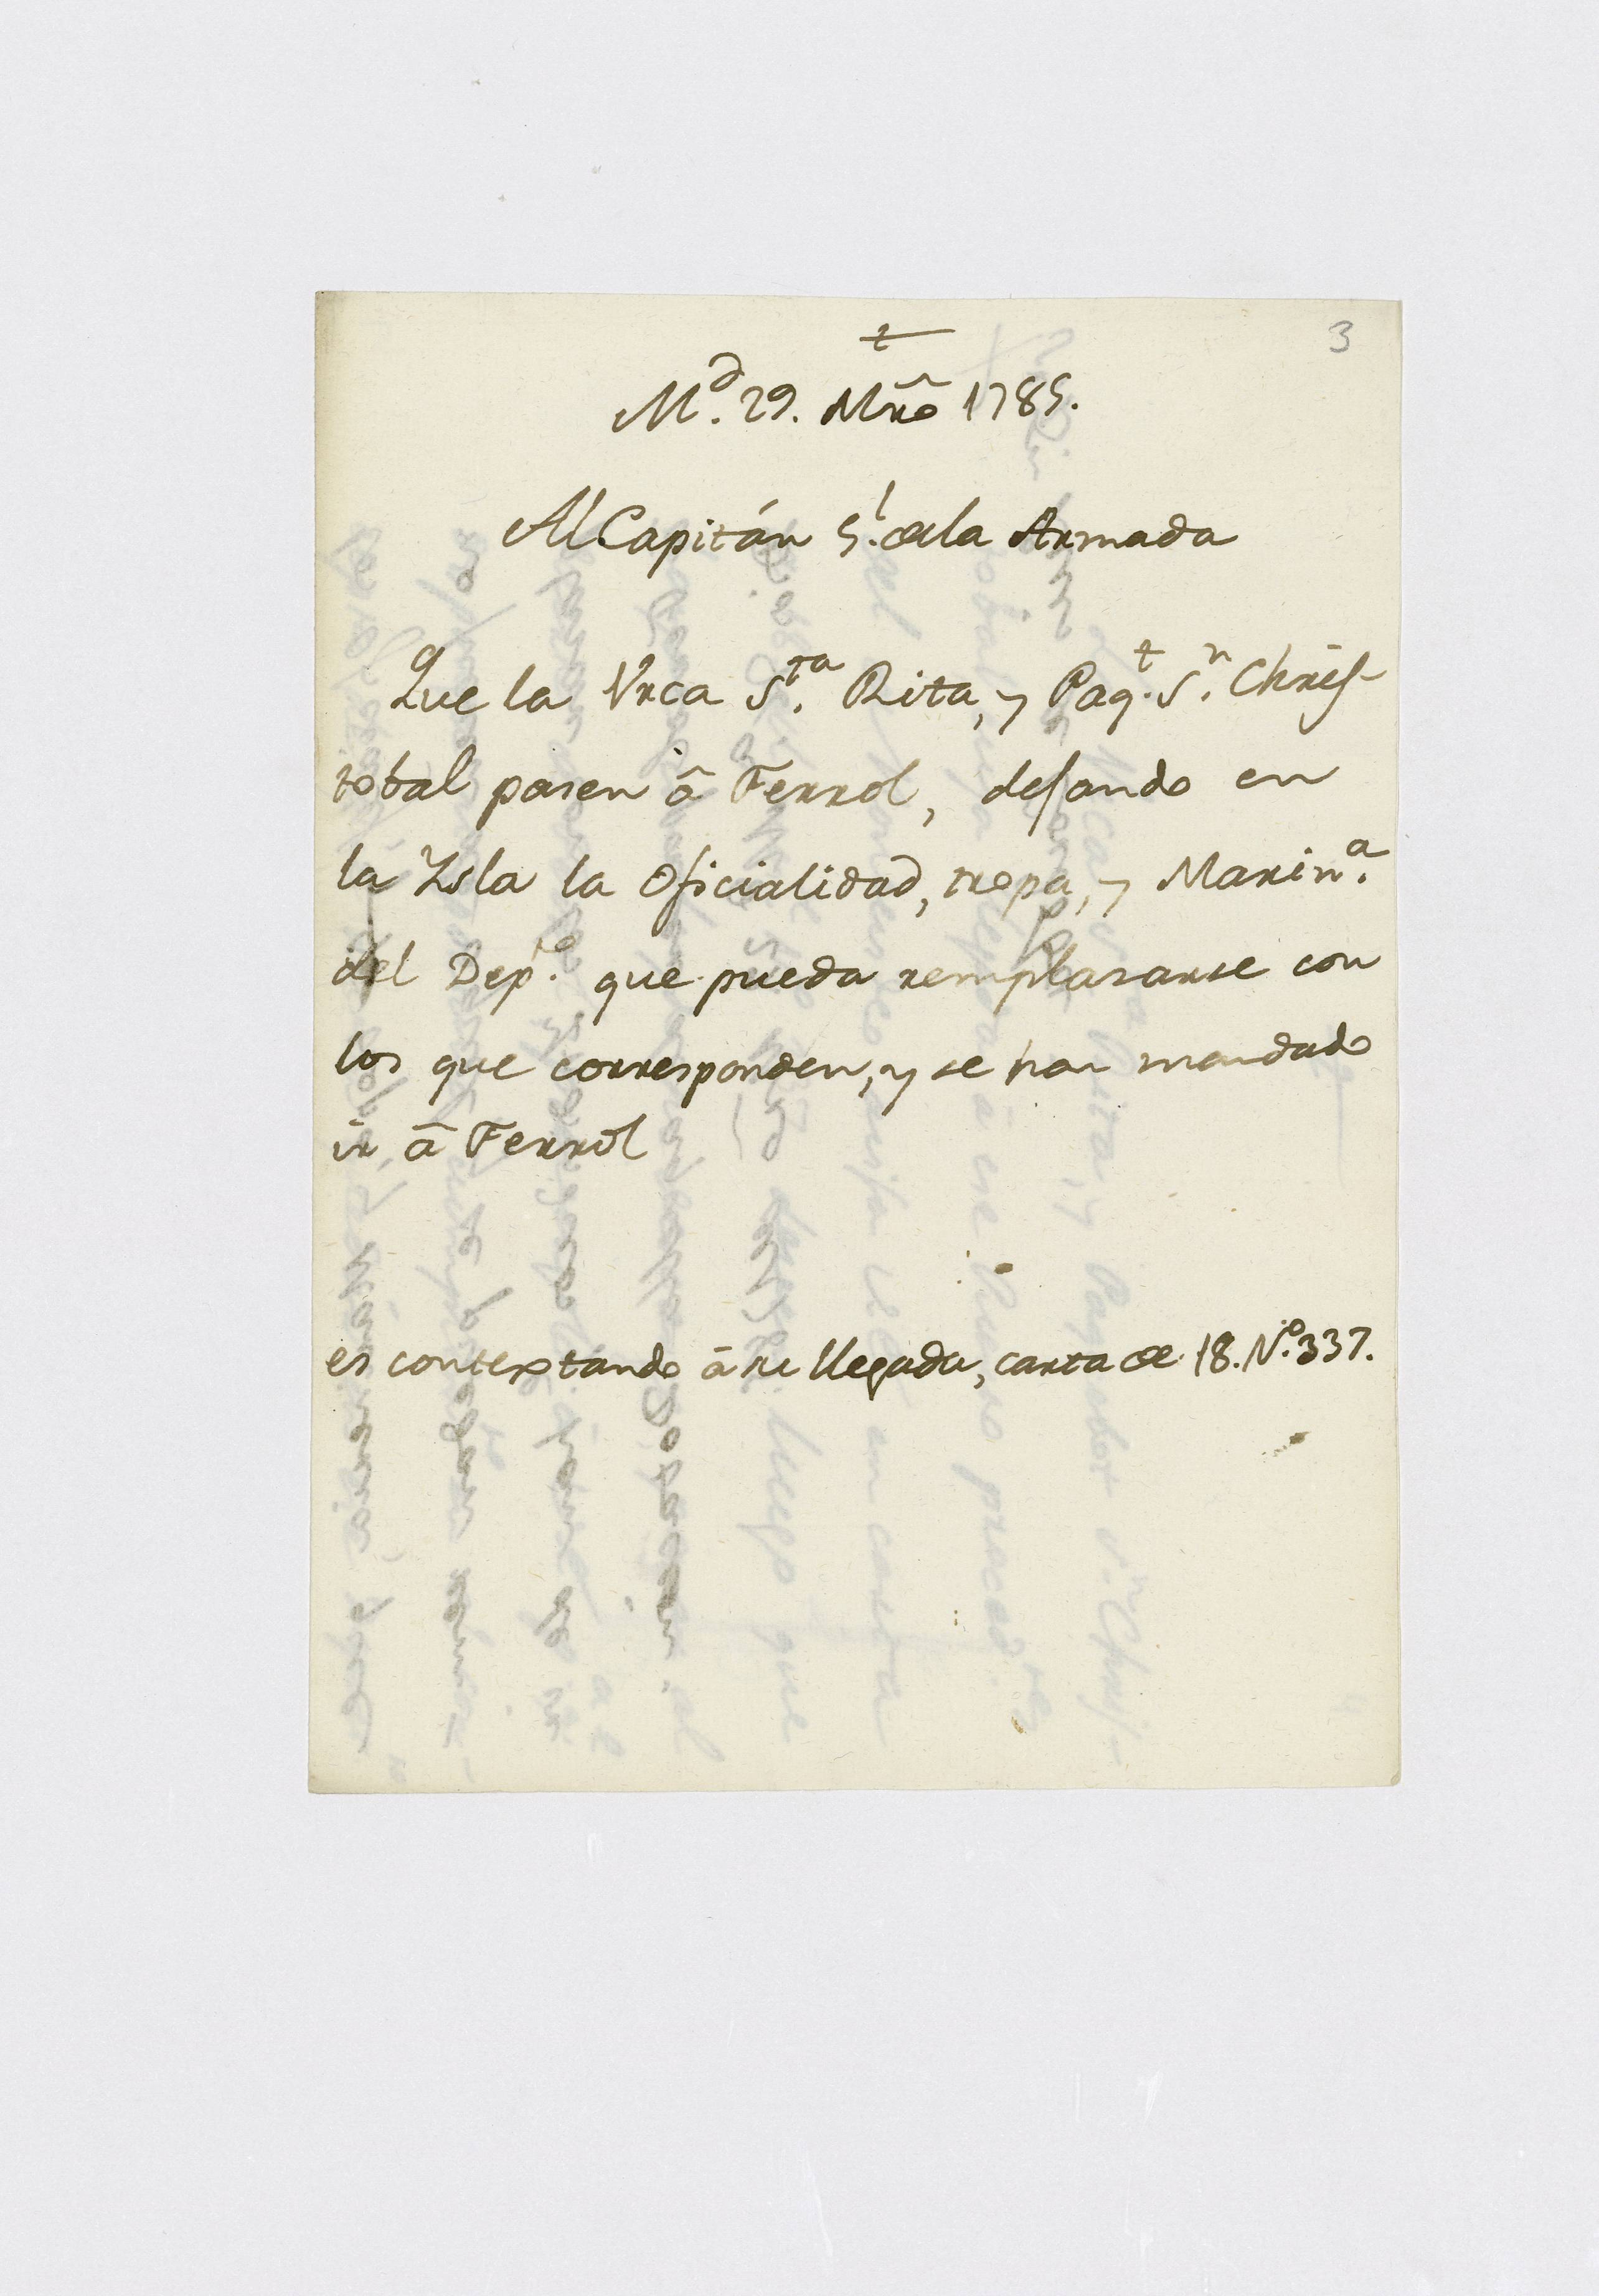 3
t
M.d 29. Mr̃o 1785.
Al Capitán G.l de la Armada
Que la Vrca S.ta Rita, y Paq.t S.n Chris-
tobal pasen â Ferrol, dejando en
la Isla la Oficialidad, tropa, y Marin.a
del Dep.to que pueda remplasarse con
los que corresponden, y se han mandado
ir â Ferrol
es contextando â su llegada, carta de 18. N.o 337.